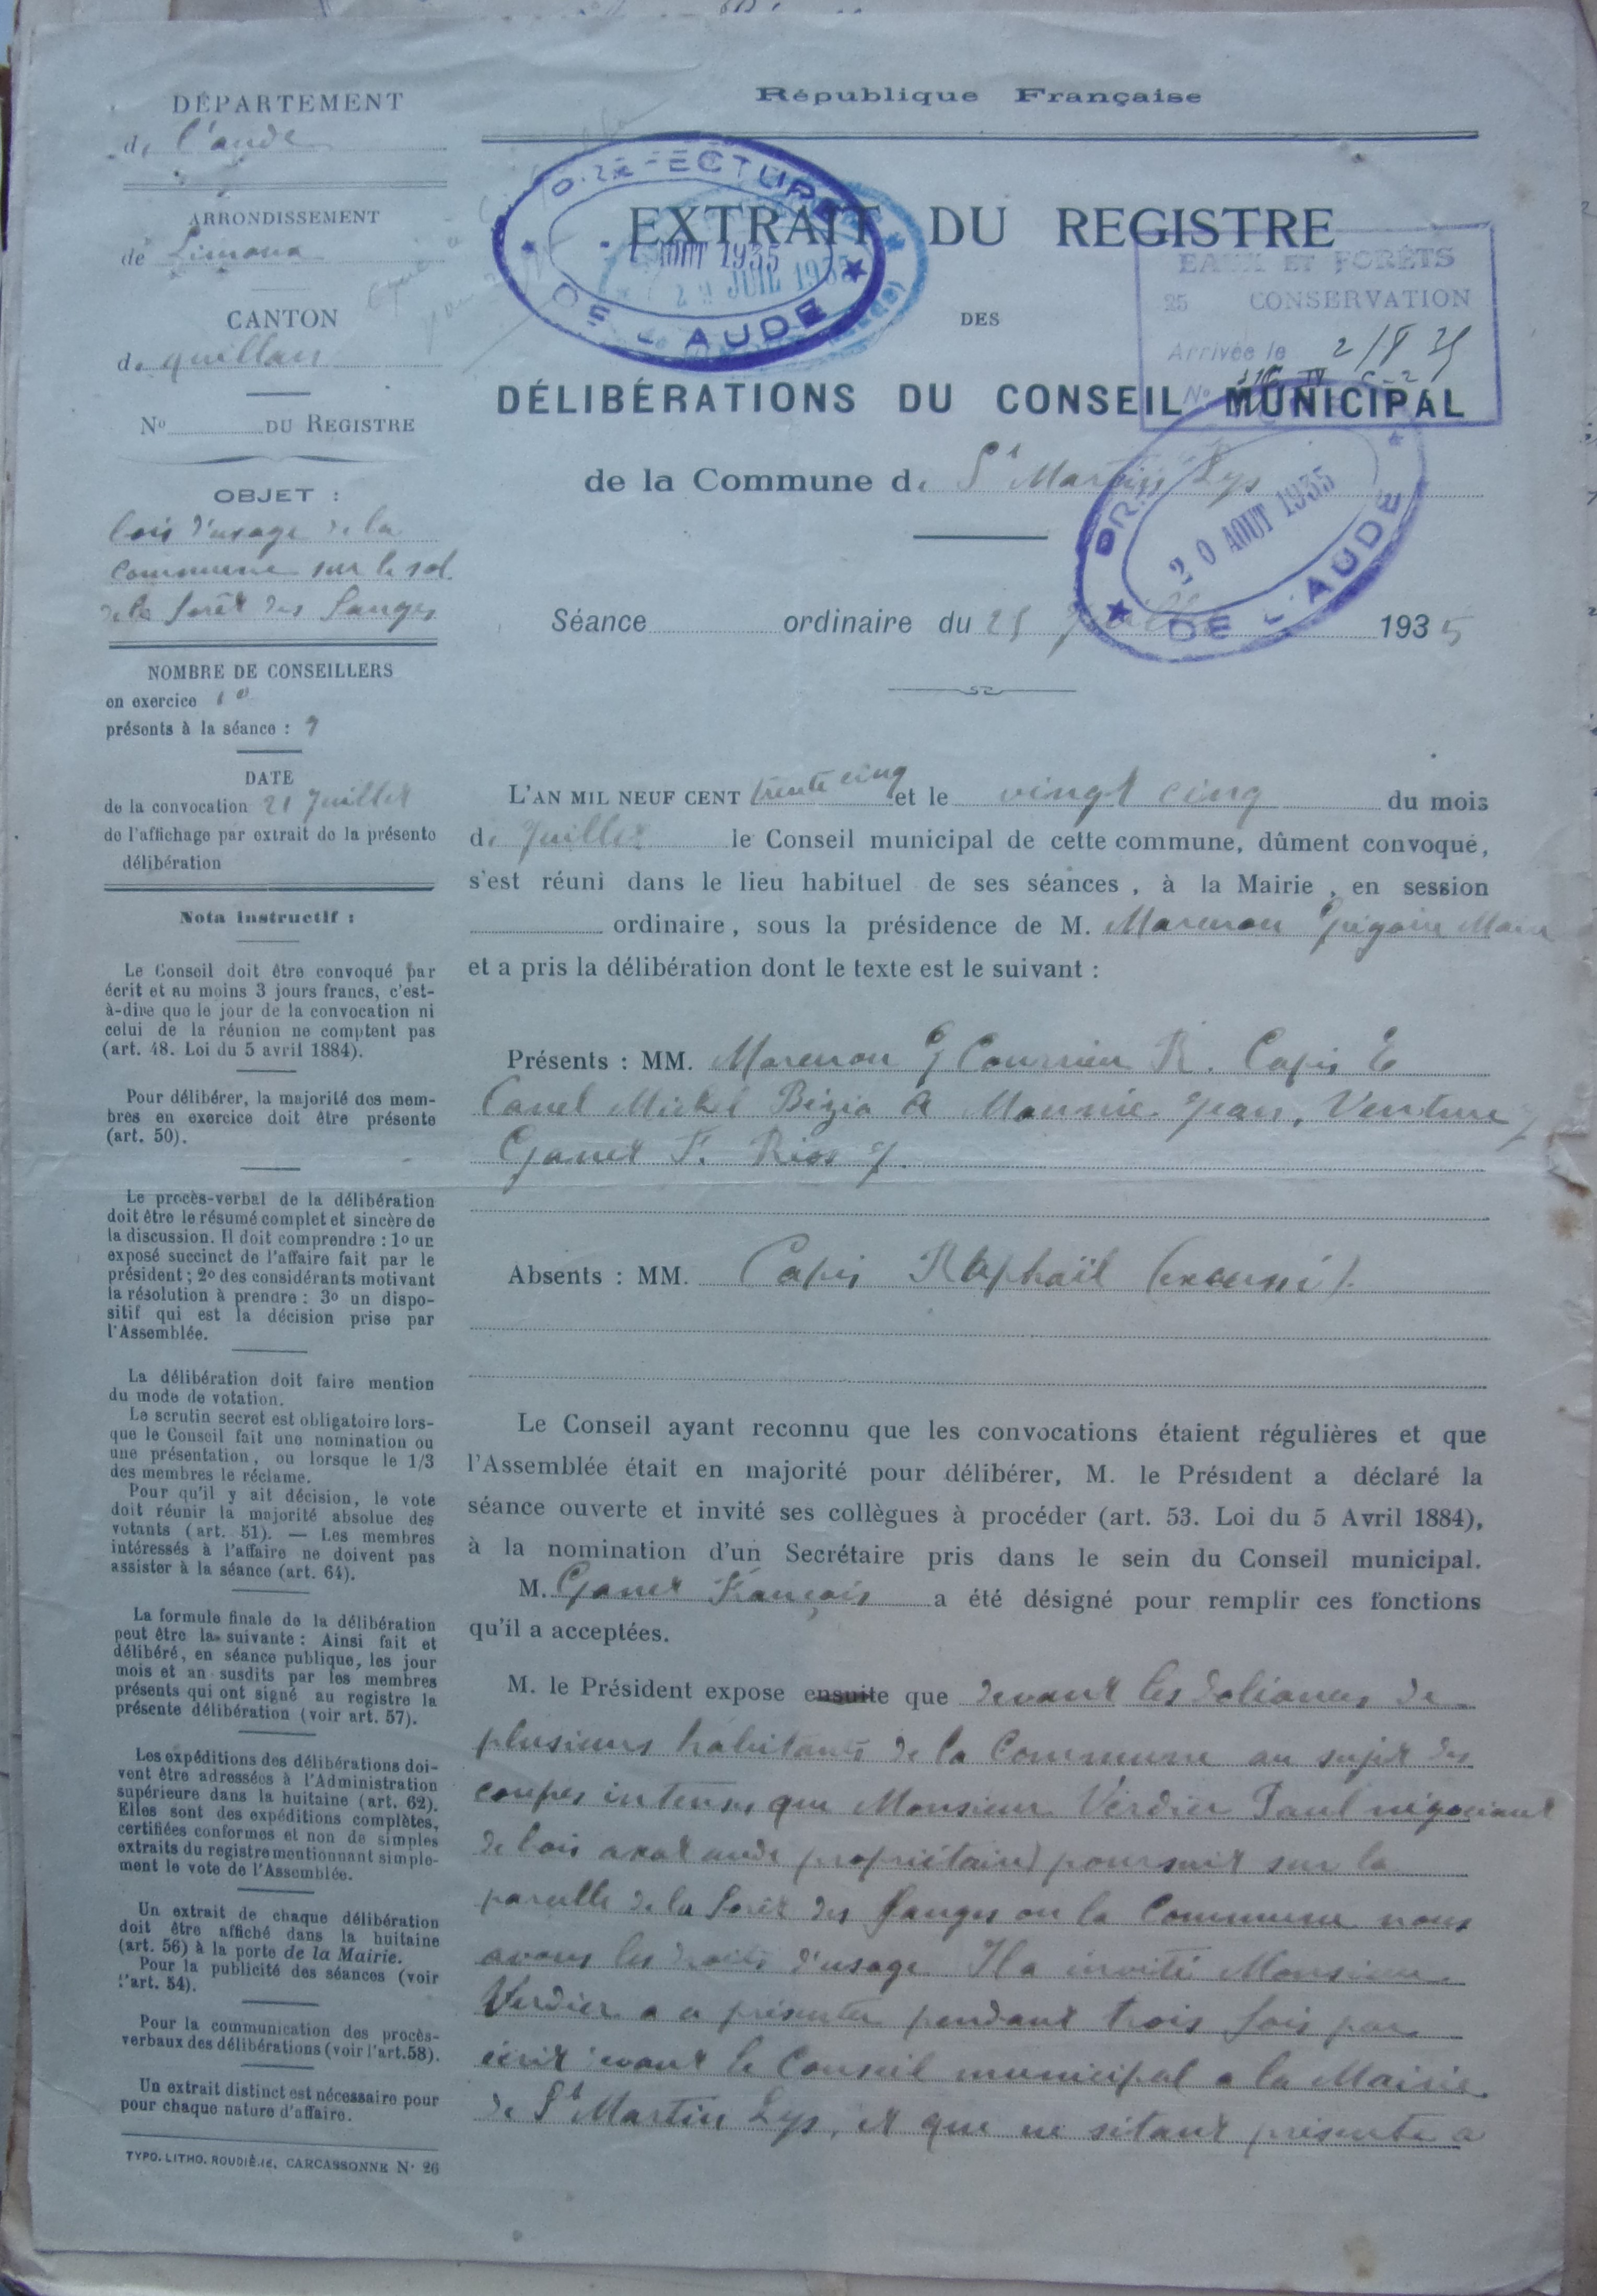 DÉPARTEMENT
de l'aude
ARRONDISSEMENT
de Limoux
CANTON
de quillan
No DU REGISTRE
OBJET :
bois d'usage de la
Commune sur le sol
de la forêt des Fanges
NOMBRE DE CONSEILLERS
en exercice 10
présents à la séance : 9
DATE
de la convocation 21 Juillet
de l'affichage par extrait de la présente
délibération
Nota Instructif :
Le Conseil doit être convoqué par
écrit et au moins 3 jours francs, c'est-
à-dire que le jour de la convocation ni
celui de la réunion ne comptent pas
(art. 48. Loi du 5 avril 1884).
Pour délibérer, la majorité des mem-
bres en exercice doit être présente
(art. 50).
Le procès-verbal de la délibération
doit être le résumé complet et sincère de
la discussion. Il doit comprendre : 1o un
exposé succinct de l'affaire fait par le
président ; 2o des considérants motivant
la résolution à prendre : 3o un dispo-
sitif qui est la décision prise par
l'Assemblée.
La délibération doit faire mention
du mode de votation.
Le scrutin secret est obligatoire lors-
que le Conseil fait une nomination ou
une présentation, ou lorsque le 1/3
des membres le réclame.
Pour qu'il y ait décision, le vote
doit réunir la majorité absolue des
votants (art. 51). — Les membres
intéressés à l'affaire ne doivent pas
assister à la séance (art. 64).
La formule finale de la délibération
peut être la suivante : Ainsi fait et
délibéré, en séance publique, les jour
mois et an susdits par les membres
présents qui ont signé au registre la
présente délibération (voir art. 57).
Les expéditions des délibérations doi-
vent être adressées à l'Administration
supérieure dans la huitaine (art. 62).
Elles sont des expéditions complètes,
certifiées conformes et non de simples
extraits du registre mentionnant simple-
ment le vote de l'Assemblée.
Un extrait de chaque délibération
doit être affiché dans la huitaine
(art. 56) à la porte de la Mairie.
Pour la publicité des séances (voir
l'art. 54).
Pour la communication des procès-
verbaux des délibérations (voir l'art. 58).
Un extrait distinct est nécessaire pour
pour chaque nature d'affaire.
TYPO. LITHO. ROUDIÈRE, CARCASSONNE N° 26
République Française
PREFECTURE
AOUT 1935
29 JUIL 1935
DE L'AUDE
EXTRAIT DU REGISTRE
EAUX ET FORÊTS
25 CONSERVATION
Arrivée le 2/8 35
No
DES
DÉLIBÉRATIONS DU CONSEIL MUNICIPAL
de la Commune de St Martin Lys
20 AOUT 1935
DE L'AUDE
Séance ordinaire du 25 Juillet 1935
L'AN MIL NEUF CENT trente cinq et le vingt cinq du mois
de Juillet le Conseil municipal de cette commune, dûment convoqué,
s'est réuni dans le lieu habituel de ses séances, à la Mairie, en session
ordinaire, sous la présidence de M. Marenou Grégoire Maire
et a pris la délibération dont le texte est le suivant :
Présents : MM. Marenou G Courrieu R. Capis E
Canel Michel Bizia A Mounié Jean, Venture J
Ganet F. Rios J.
Absents : MM. Capis Raphaël (excusé).
Le Conseil ayant reconnu que les convocations étaient régulières et que
l'Assemblée était en majorité pour délibérer, M. le Président a déclaré la
séance ouverte et invité ses collègues à procéder (art. 53. Loi du 5 Avril 1884),
à la nomination d'un Secrétaire pris dans le sein du Conseil municipal.
M. Ganet François a été désigné pour remplir ces fonctions
qu'il a acceptées.
M. le Président expose ensuite que devant les doliances de
plusieurs habitants de la Commune au sujet des
coupes intenses que Monsieur Verdier Paul négociant
de bois a axat aude propriétaire) poursuit sur la
parcelle de la forêt des Fanges ou la Commune nous
avons les droits d'usage Il a invité Monsieur
Verdier a a présenter pendant trois fois par
écrit devant le Conseil municipal a la Mairie
de St Martin Lys, et que ne sétant présenté a